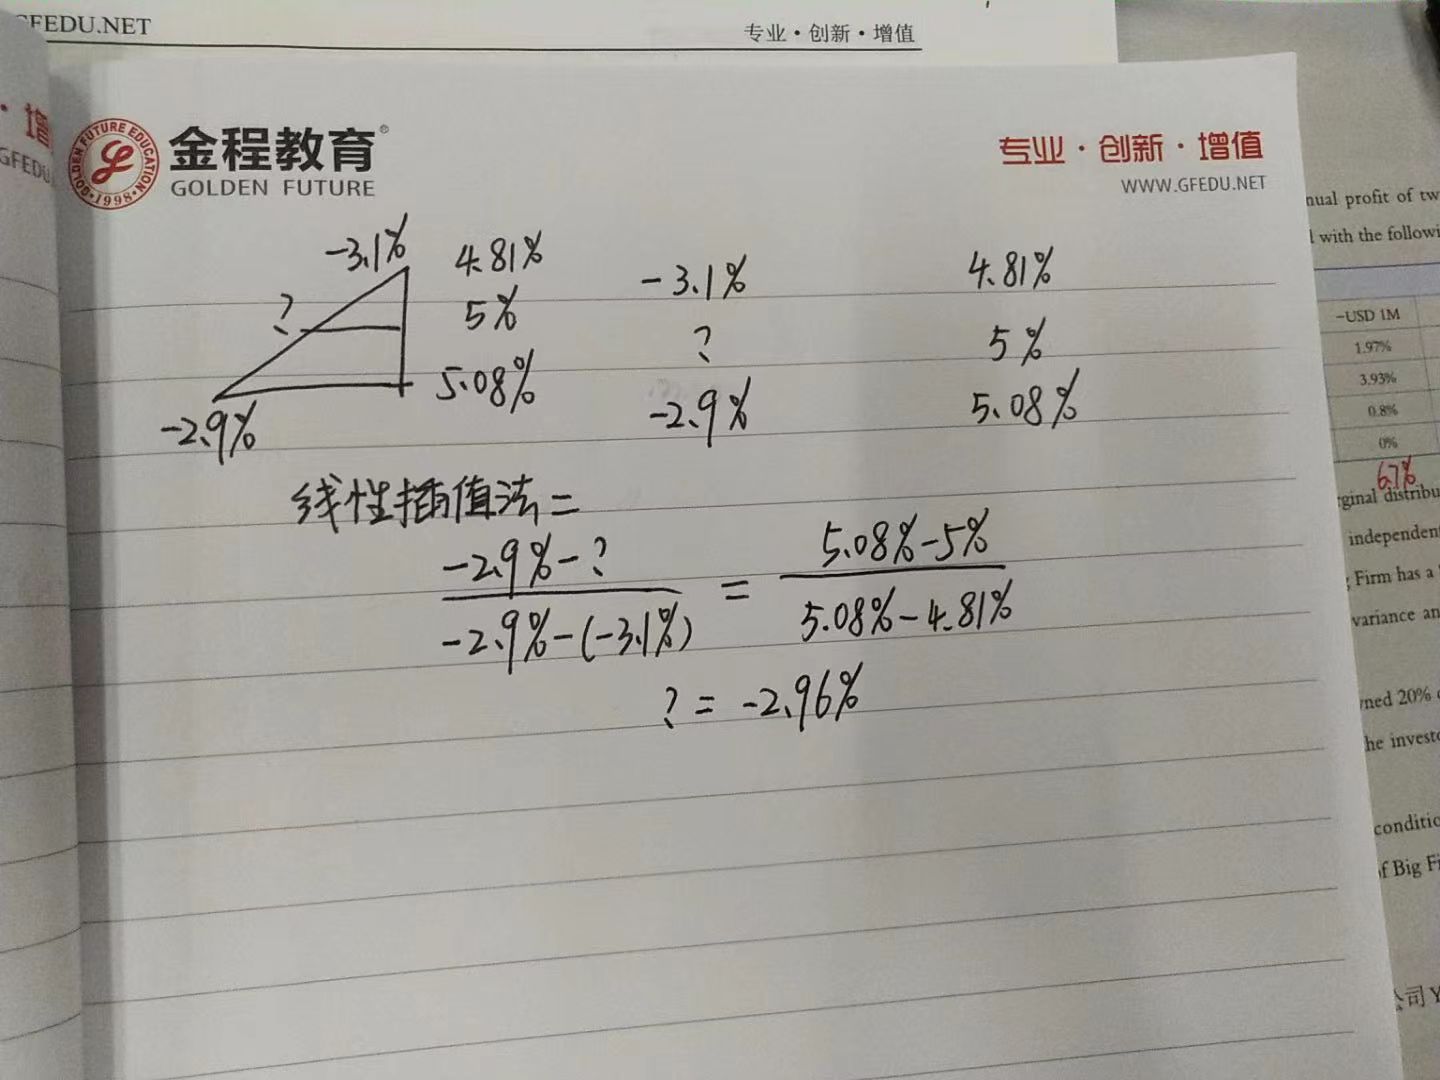 GFEDU.NET
专业·创新·增值
·增
GFEDU
GOLDEN FUTURE EDUCATION
·1998·
金程教育®
GOLDEN FUTURE
专业·创新·增值
WWW.GFEDU.NET
-3.1% 4.81% -3.1% 4.81%
? 5% ? 5%
-2.9% 5.08% -2.9% 5.08%
线性插值法=
-2.9%-? / -2.9%-(-3.1%) = 5.08%-5% / 5.08%-4.81%
?=-2.96%
nual profit of tw
with the followi
-USD 1M
1.97%
3.93%
0.8%
0%
6.7%
ginal distribu
independent
Firm has a
variance an
ned 20%
he investo
conditio
f Big Fi
公司Y